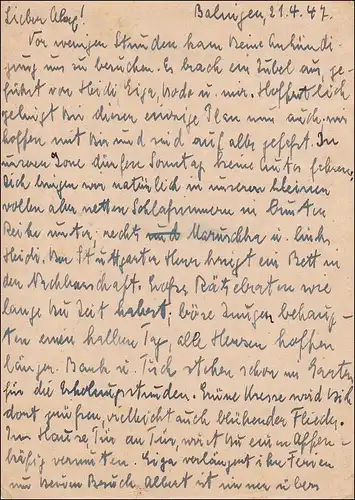 Lieber Olaf! Balingen, 21.4.47.
Vor wenigen Stunden kam Deine Ankündi-
gung uns zu besuchen. Es brach ein Jubel aus, ge-
führt von Heidi, Eiga, Bode u. mir. Hoffentlich
gelingt Dir dieser einzige Plan nun auch, wir
hoffen mit Dir und sind auf alles gefaßt. In
unserer Zone dürfen Sonntag keine Autos fahren,
Dich bringen wir natürlich in unseren kleinen
vollen aber netten Schlafzimmern in bunter
Reihe unter, rechts und Maruschka u. links
Heidi. Der Stuttgarter Herr kriegt ein Bett in
der Nachbarschaft. Großes Rätselraten wie
lange Du Zeit habest, böse Zungen behaup-
ten einen halben Tag, alle Herzen hoffen
länger. Bank u. Tisch stehen schon im Garten
für die Erholungsstunden. Grüne Kresse wird Dich
dort grüßen, vielleicht auch blühender Flieder.
Im Hause Tür an Tür, wirst Du einen Affen-
käfig vermuten. Eiga verlängert ihre Ferien
um Deinen Besuch, Albert ist immer übers